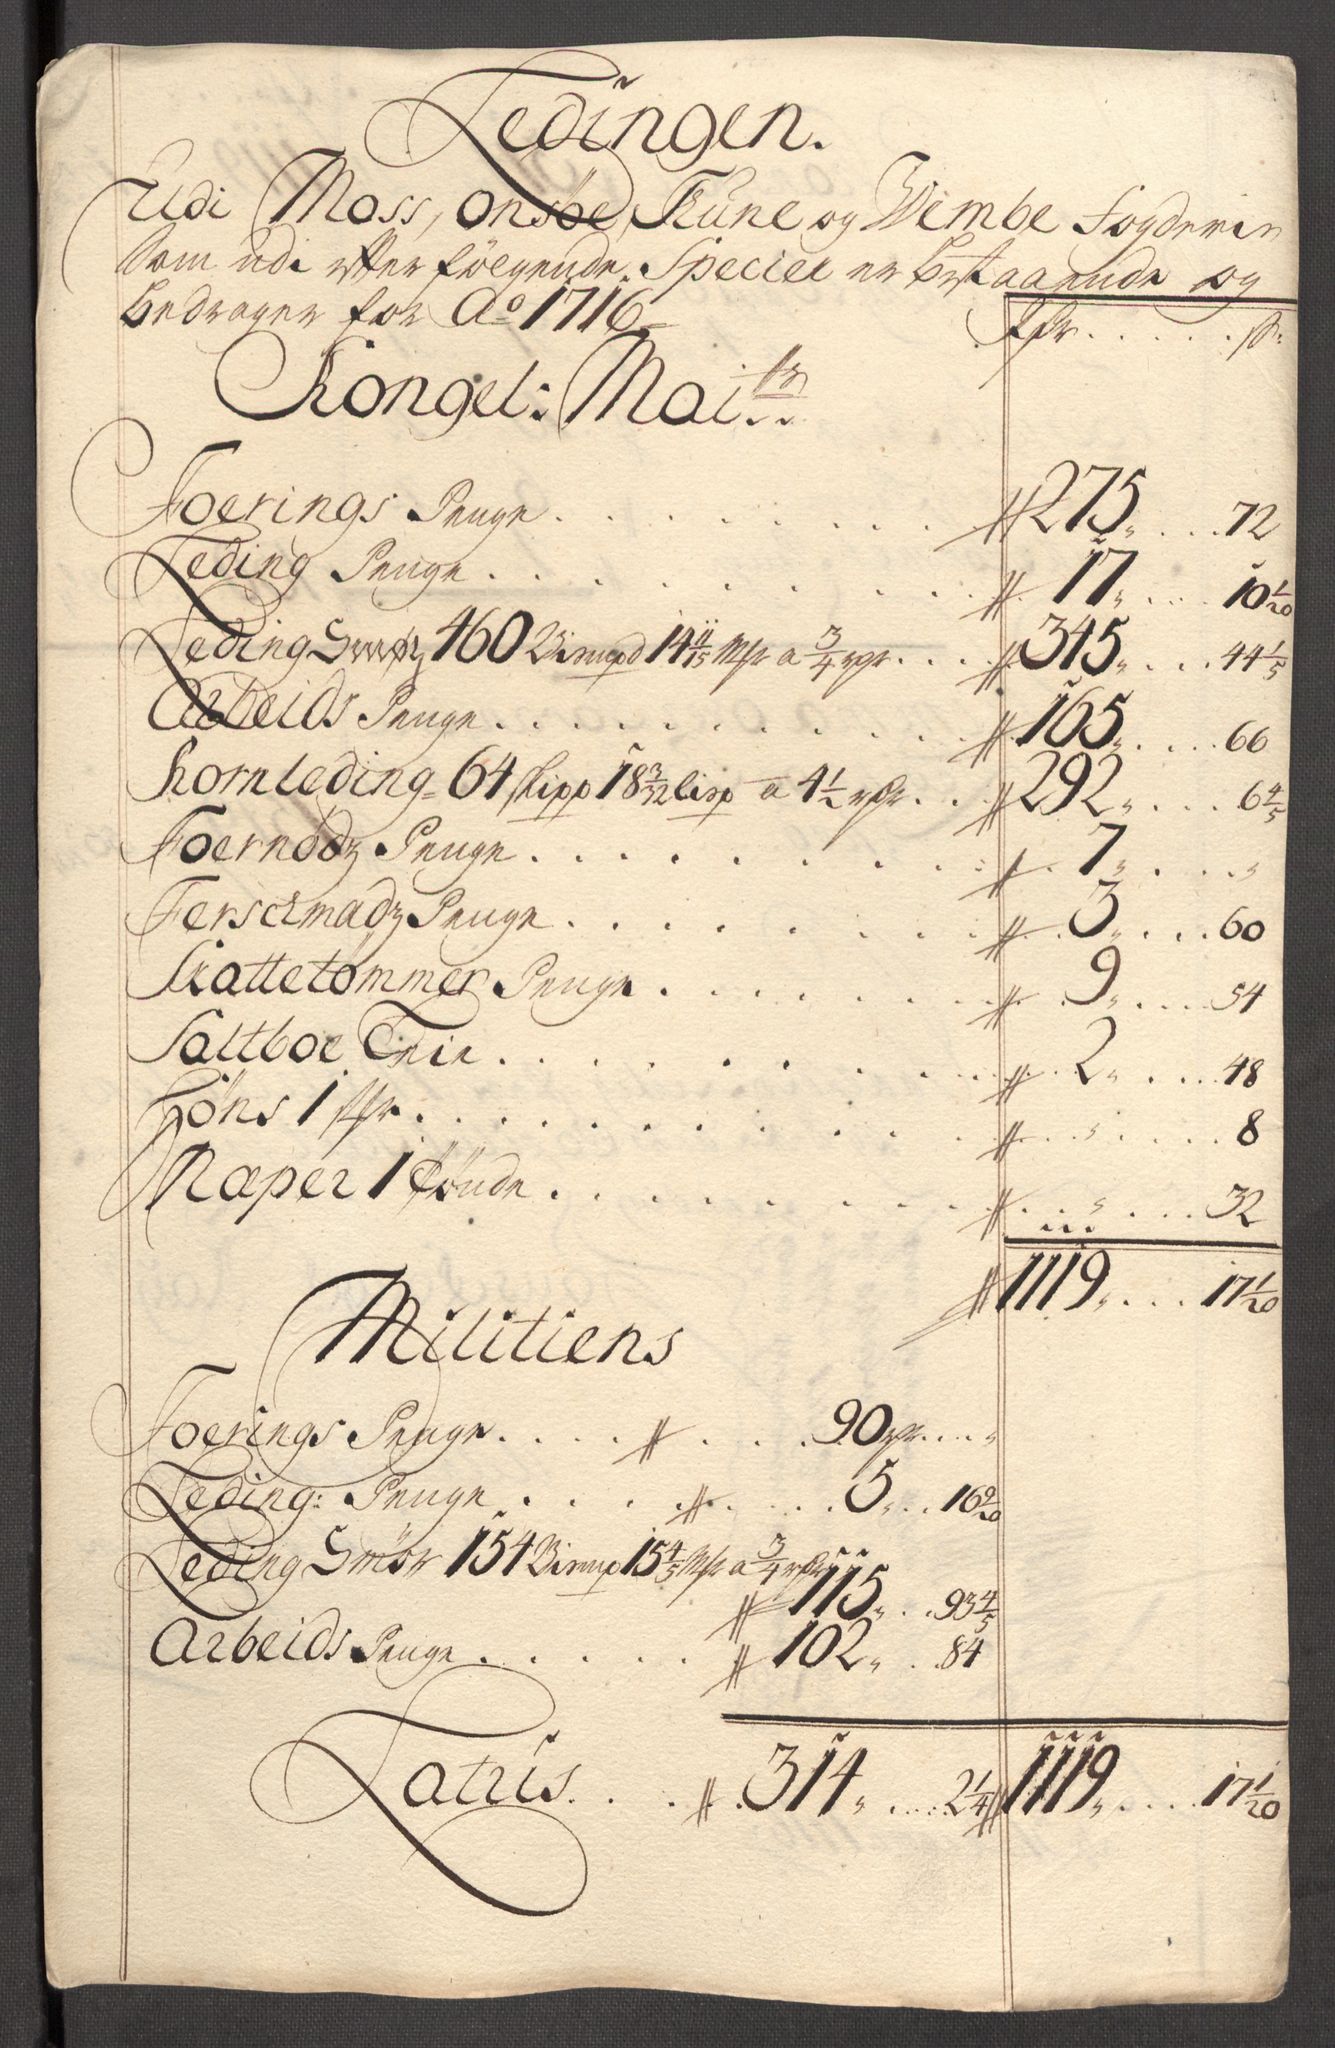 Ledingen.
Udi Moss, Onsöe, Tune og Wembe Fogderie
Som udi efterfölgende Specier er bestaaende og
bedrager for Ao 1716
Rdr . . . . . ß:
Kongel: Mai:ts
Foerings Penge . . . . . . . . . # 275„ . . . 72
Leding Penge . . . . . . . . . # 17„ . . . 10 1/20
Leding Smör 460 Bismpd 14 11/15 Mrk a 3/4 rdr . . . # 345„ . . . 44 1/5
Arbeids Penge . . . . . . . . . # 165„ . . . 66
Kornleding 64 skipp 18 3/32 lisp a 4 1/2 rdr . . . # 292„ . . . 6 4/5
Foernödz Penge . . . . . . . . # 7„ . . . „
Ferschmadz Penge . . . . . . . # 3„ . . . 60
Skattetömmer Penge . . . . . . # 9„ . . . 54
Saltboe Leie . . . . . . . . . # 2„ . . . 48
Höns 1 . . . . . . . . . # „ . . . 8
Næper 1 tönde . . . . . . . . # „ . . . 32
# 1119„ . . . 17 1/20
Militiens
Foerings Penge . . . . # . . . 90 rdr . . . „
Leding: Penge . . . . # . . . 5„ . . 16 9/20
Leding Smör 154 Bismp 15 4/5 Mrk a 3/4 rdr
# 115„ . . 93 4/5
Arbeids Penge . . . . . # 102„ . . 84
Latris . . . # 314„ . . . 2 1/4 # 1119„ . . . 17 1/20